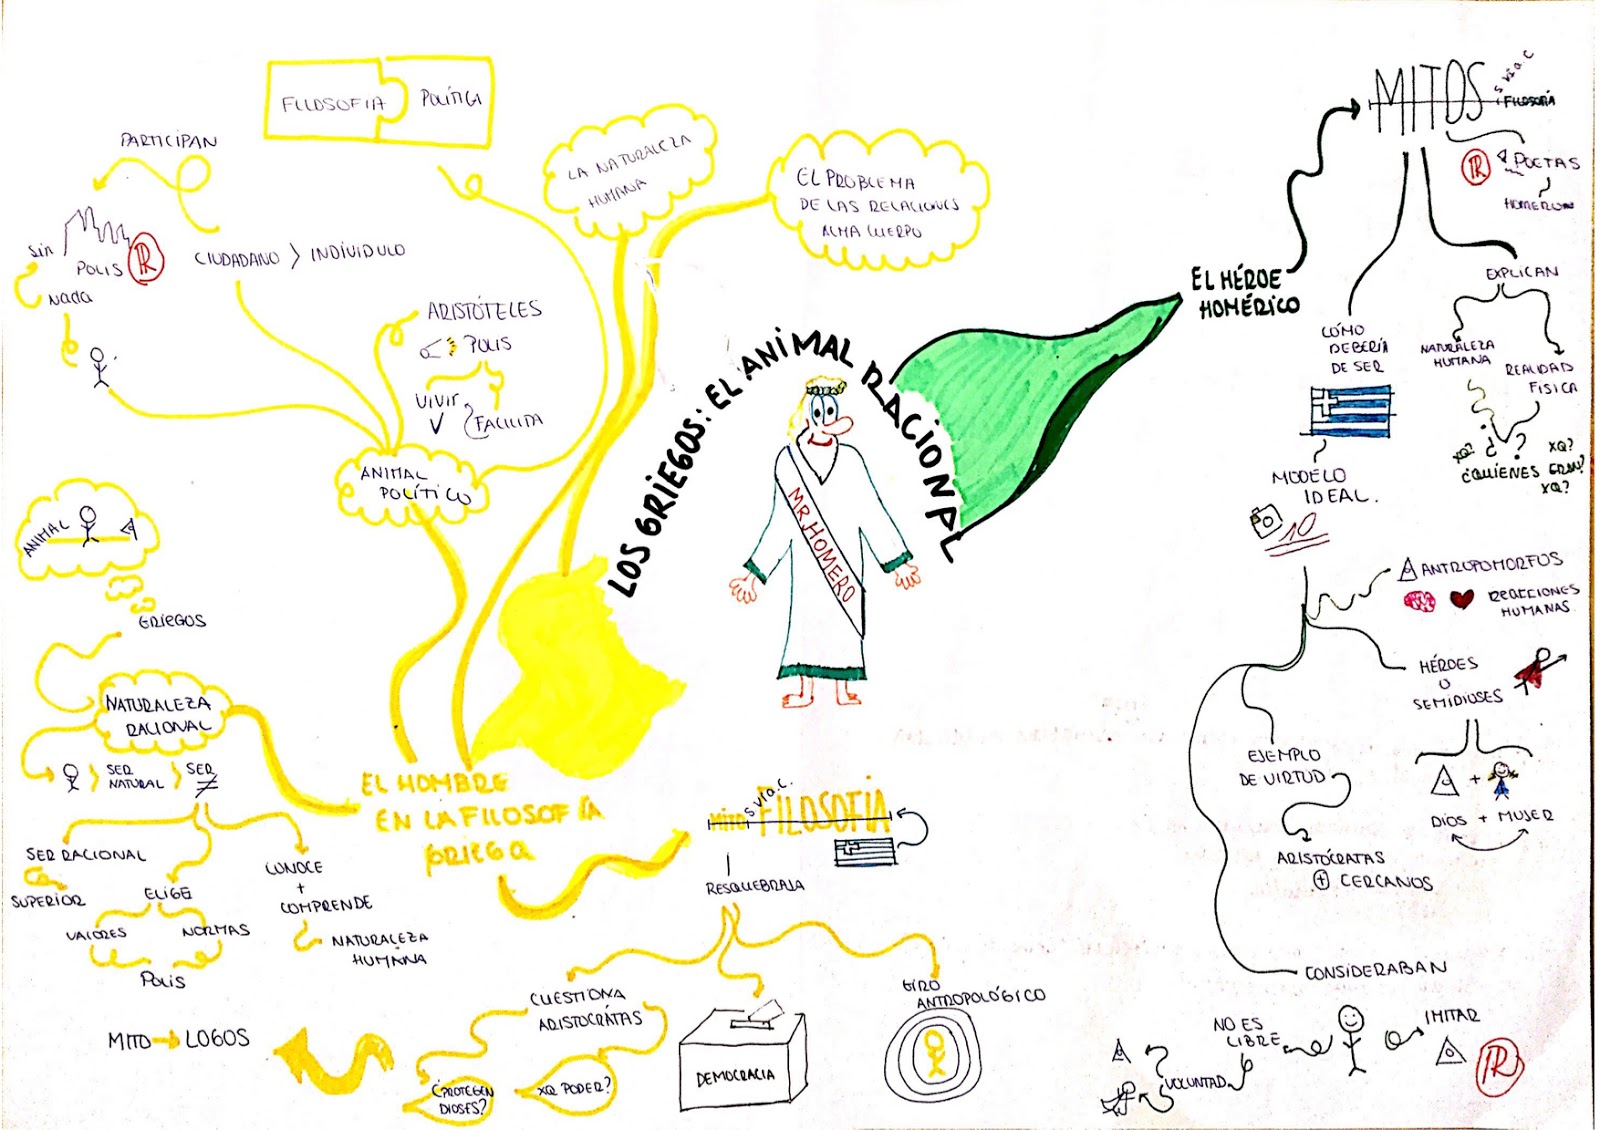 LOS GRIEGOS: EL ANIMAL RACIONAL
MR. HOMERO
EL HÉROE
HOMÉRICO
MITOS
S. VI a. C
FILOSOFÍA
POETAS
HOMERO
EXPLICAN
NATURALEZA
HUMANA
REALIDAD
FÍSICA
XQ? ¿ ? XQ?
¿QUIENES ERAN?
XQ?
CÓMO
DEBERÍA
DE SER
MODELO
IDEAL.
10
ANTROPOMORFOS
REACCIONES
HUMANAS.
HÉROES
O
SEMIDIOSES
+
DIOS + MUJER
EJEMPLO
DE VIRTUD
ARISTÓCRATAS
+ CERCANOS
CONSIDERABAN
NO ES
LIBRE
IMITAR
VOLUNTAD
R
EL HOMBRE
EN LA FILOSOFÍA
GRIEGA
EL PROBLEMA
DE LAS RELACIONES
ALMA CUERPO
LA NATURALEZA
HUMANA
ANIMAL
POLÍTICO
FILOSOFIA
POLÍTICA
ARISTÓTELES
POLIS
VIVIR
FACILITA
CIUDADANO > INDIVIDUO
PARTICIPAN
Sin
POLIS
R
Nada
NATURALEZA
RACIONAL
GRIEGOS
ANIMAL
> SER
NATURAL
> SER
≠
SER RACIONAL
SUPERIOR
ELIGE
VALORES
NORMAS
Polis
CONOCE
+
COMPRENDE
NATURALEZA
HUMANA
MITO
S VI a.C.
FILOSOFÍA
RESQUEBRAJA
CUESTIONA
ARISTOCRÁTAS
¿PROTEGEN
DIOSES?
XQ PODER?
DEMOCRACIA
GIRO
ANTROPOLÓGICO
MITO → LOGOS